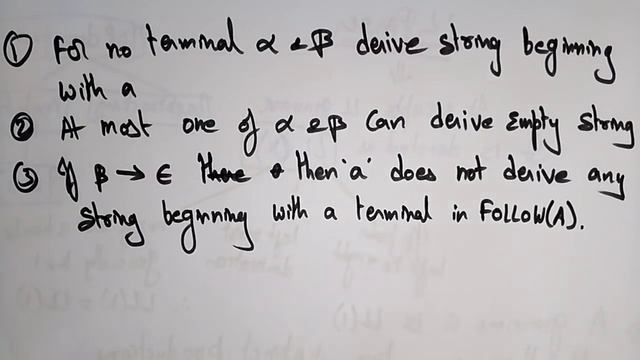 ① For no terminal α & β derive string beginning
with a
② At most one of α & β Can derive Empty string
③ If β → ∈ then 'a' does not derive any
string beginning with a terminal in FOLLOW(A).